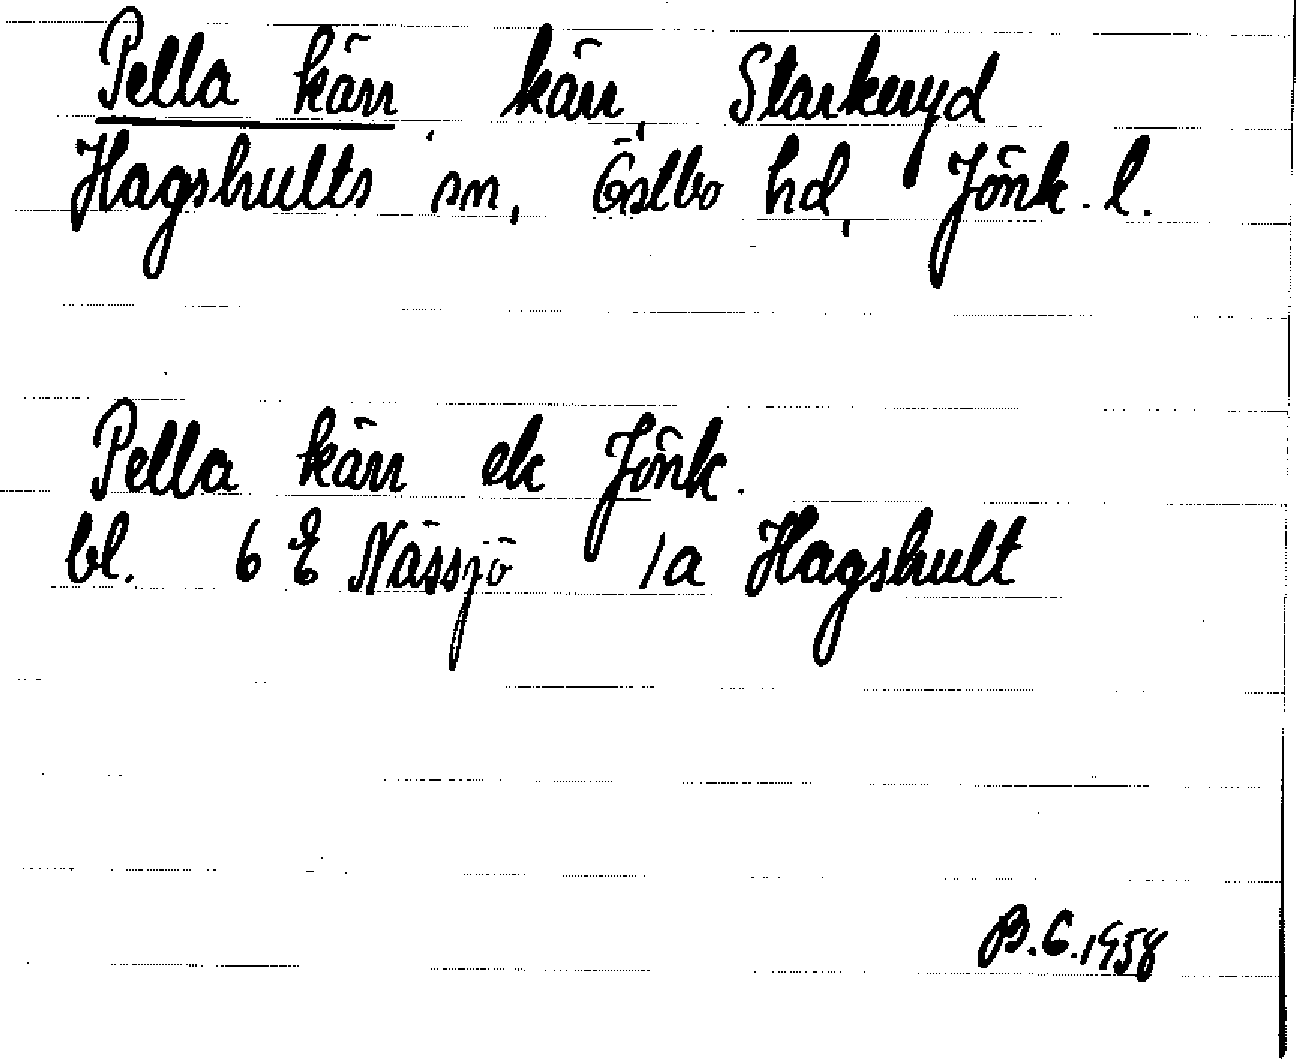 Pella kärr, kärr, Starkeryd
Hagshults sn, Östbo hd, Jönk. l.
Pella kärr ek Jönk.
bl. 6 E Nässjö 1a Hagshult
B.C. 1958